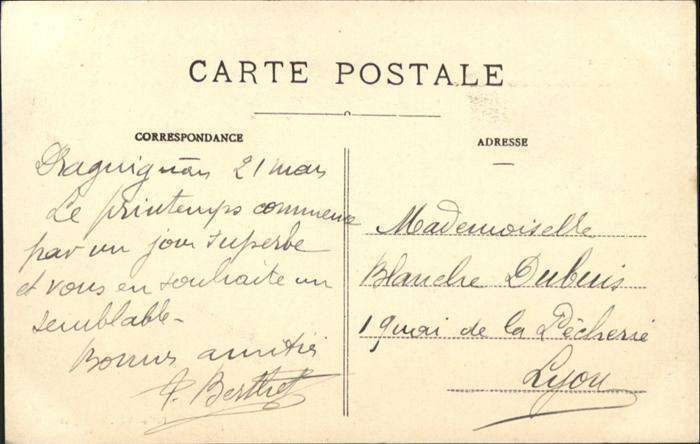 CARTE POSTALE
CORRESPONDANCE
Draguignan 21 mars
Le printemps commence
par un jour superbe
et vous en souhaite un
semblable-
Bonnes amitiés
P. Berthet
ADRESSE
Mademoiselle
Blanche Dubuis
19 quai de la Pêcherie
Lyon